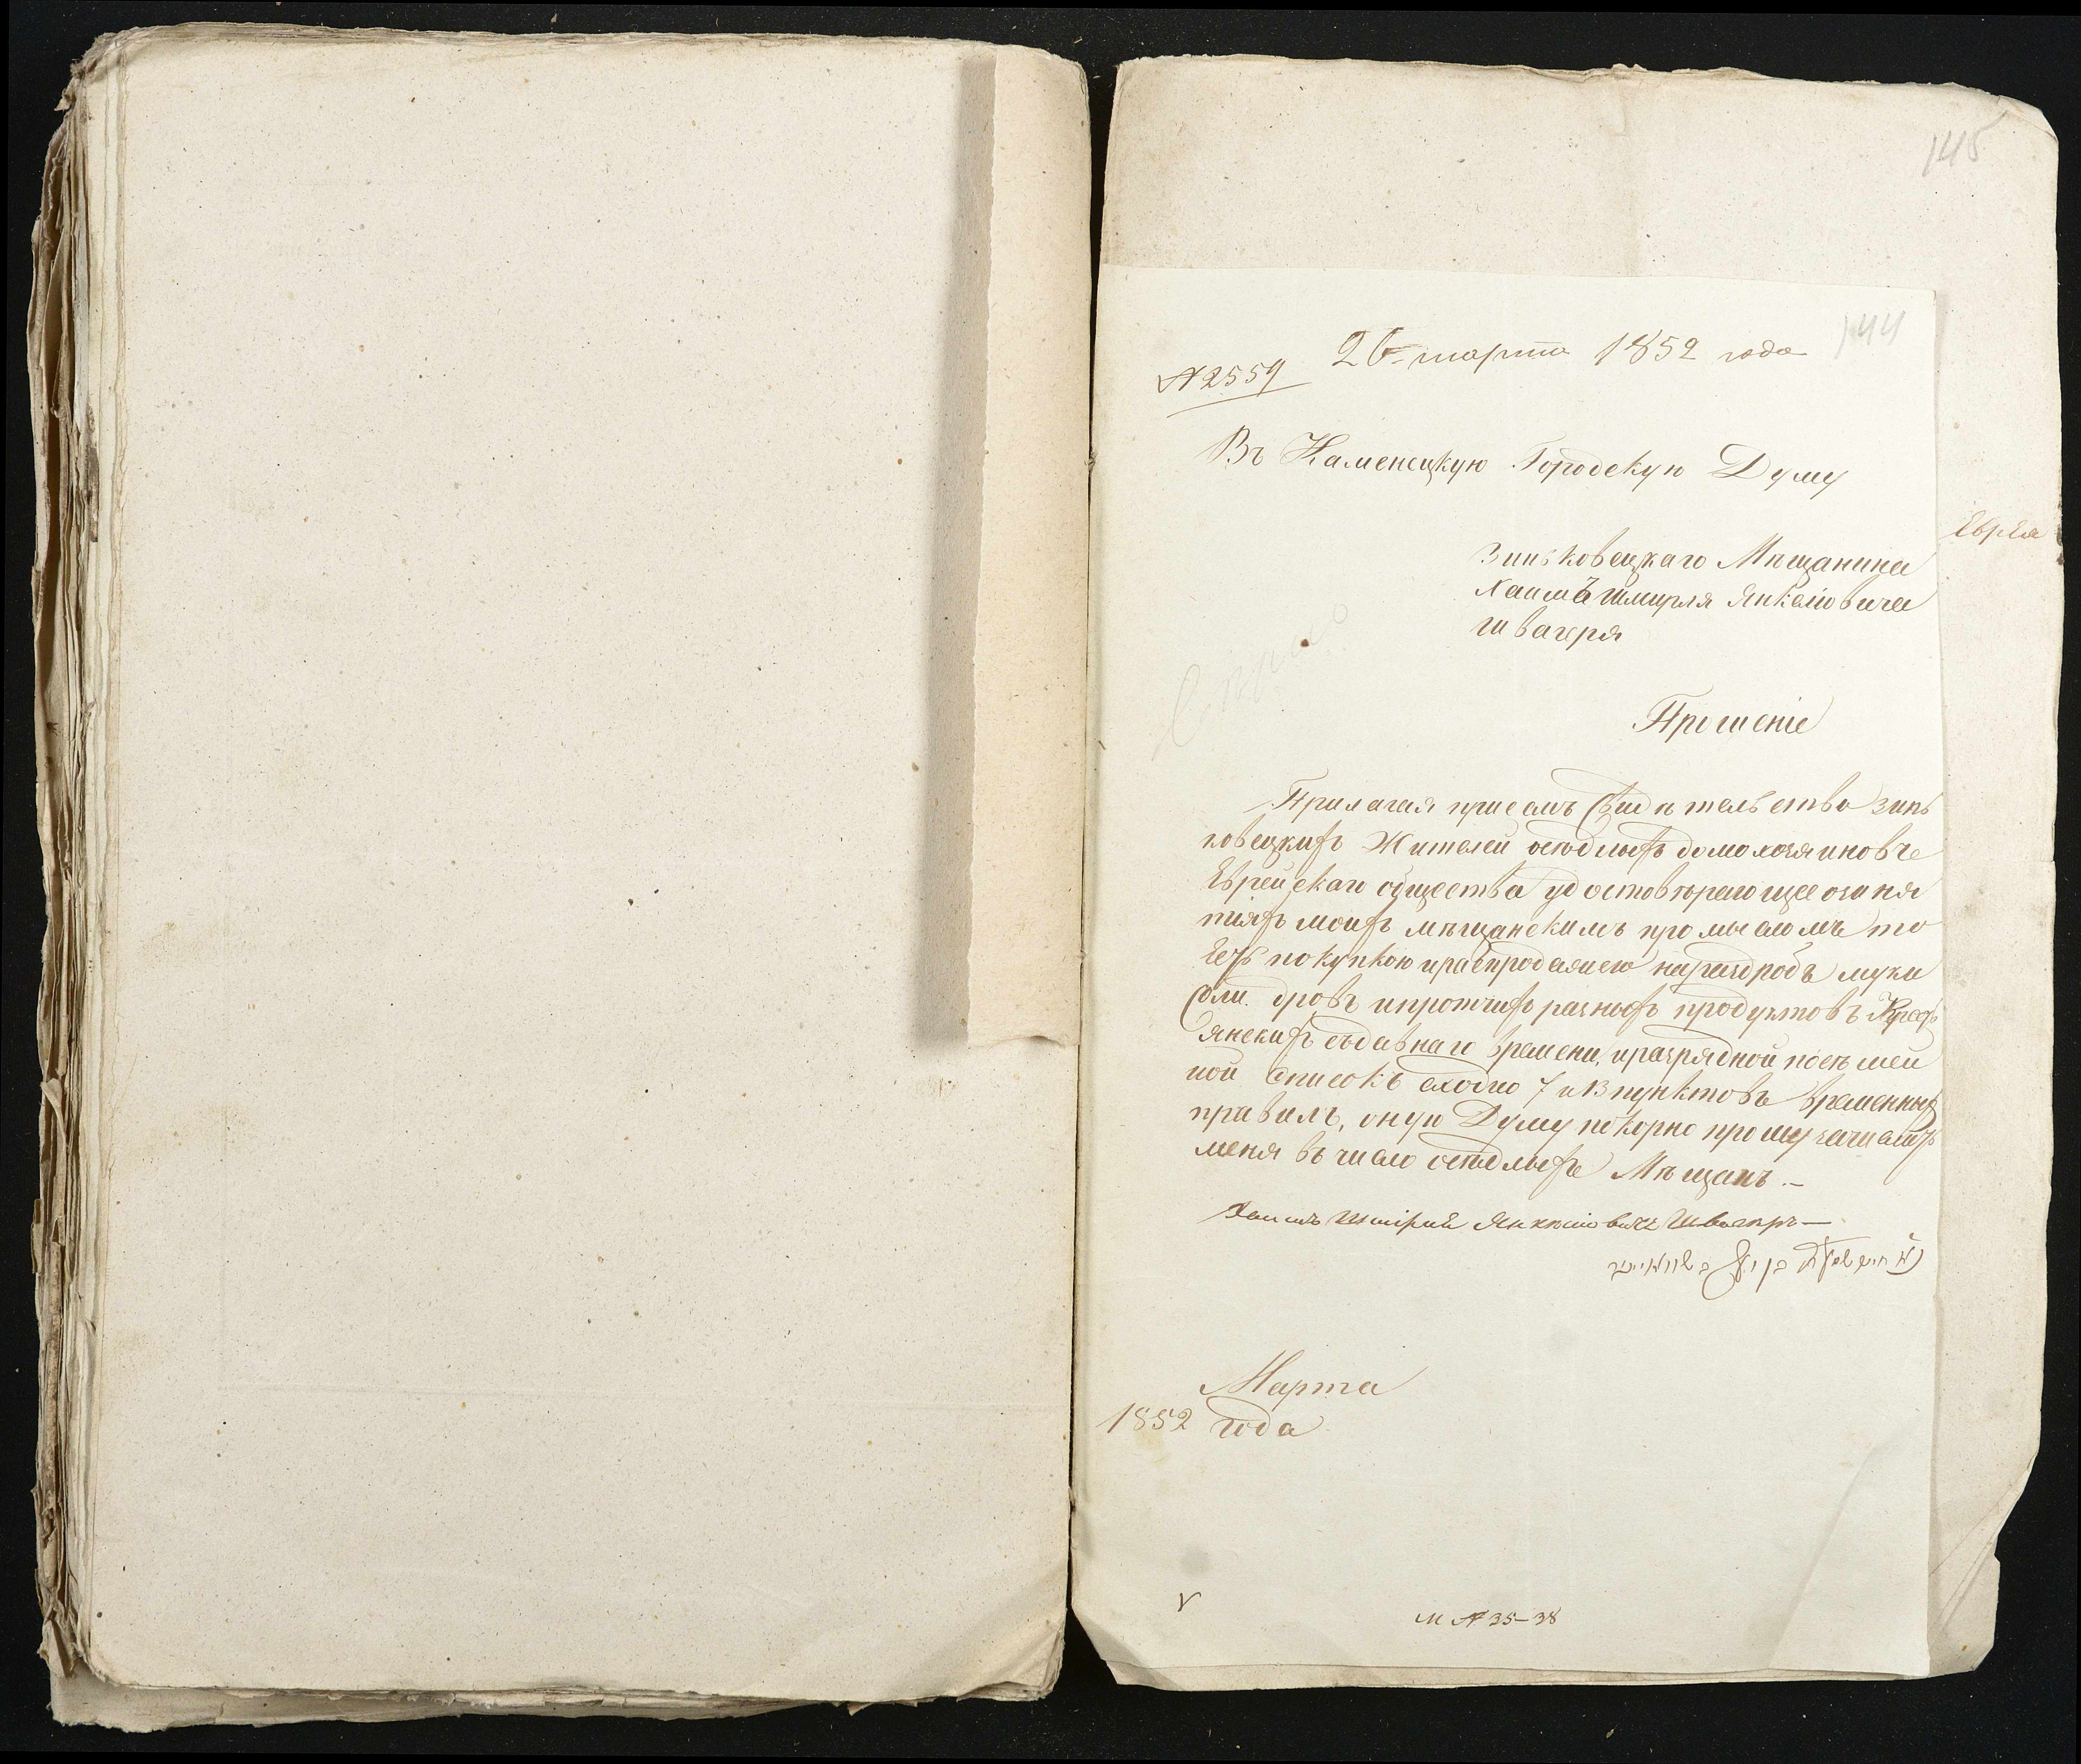 145
144
26 марта 1852 года
№ 2559
Въ Каменецкую Городскую Думу
Еврея
Зиньковецкаго Мѣщанина
Хаимъ Шмирля Янкеліовича
Швагеря
Прошеніе
Прилагая присемъ Свидѣтельство Зинь
ковецкихъ Жителей осѣдлыхъ домохозяиновъ
Еврейскаго общества удостовѣряющее озаня
тіяхъ моихъ мѣщанскимъ промысломъ то
есть покупкою ираспродажею наразтдробъ муки
Соли дровъ ипротчихъ разныхъ продуктовъ Крест
янскихъ съдавнаго времени, иразрядной посѣмей
ной Списокъ сходно 7 и 13 пунктовъ временныхъ
правилъ, оную Думу покорно прошу зачислить
меня въ число осѣдлыхъ Мѣщанъ.-
Хаимъ Янкеліовичъ Швагеръ
Марта
1852 года
М № 35-38